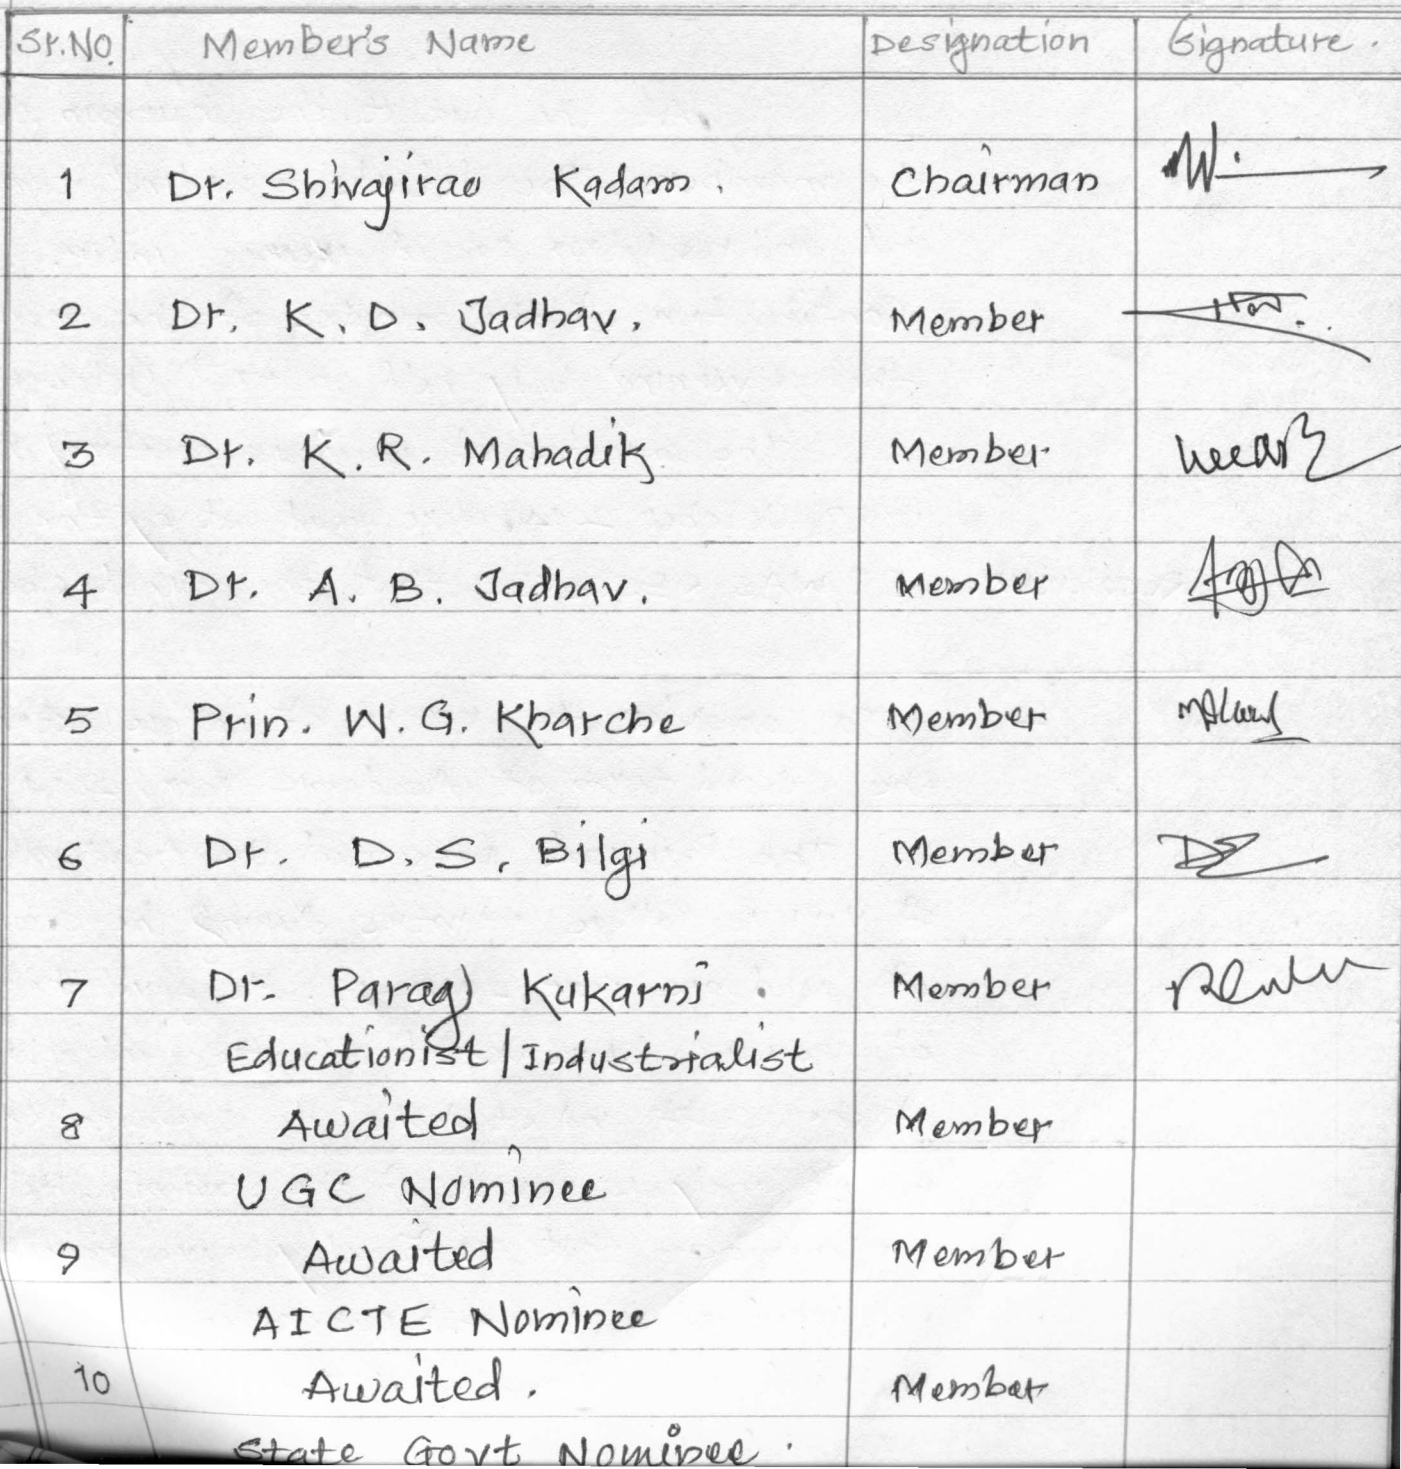 Sr.No. Member's Name Designation Signature.
1 Dr. Shivajirao Kadam. Chairman
2 Dr. K. D. Jadhav. Member
3 Dr. K. R. Mahadik Member
4 Dr. A. B. Jadhav. Member
5 Prin. W. G. Kharche Member
6 Dr. D. S. Bilgi Member
7 Dr. Parag Kukarni. Member
Educationist/Industrialist
8 Awaited Member
UGC Nominee
9 Awaited Member
AICTE Nominee
10 Awaited. Member
State Govt Nominee.